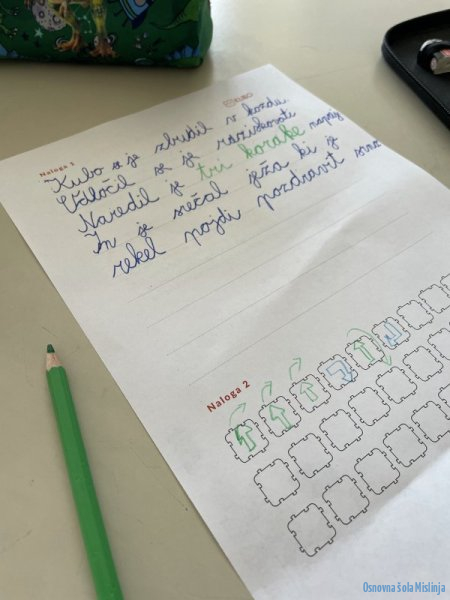 Naloga 1
Kubo se je zbudil v kozdu.
Odločil se je raziskovati
Naredil je tri korake naprej
In je srečal ježa ki je
rekel pojdi pozdravit
Naloga 2
Osnovna šola Mislinja